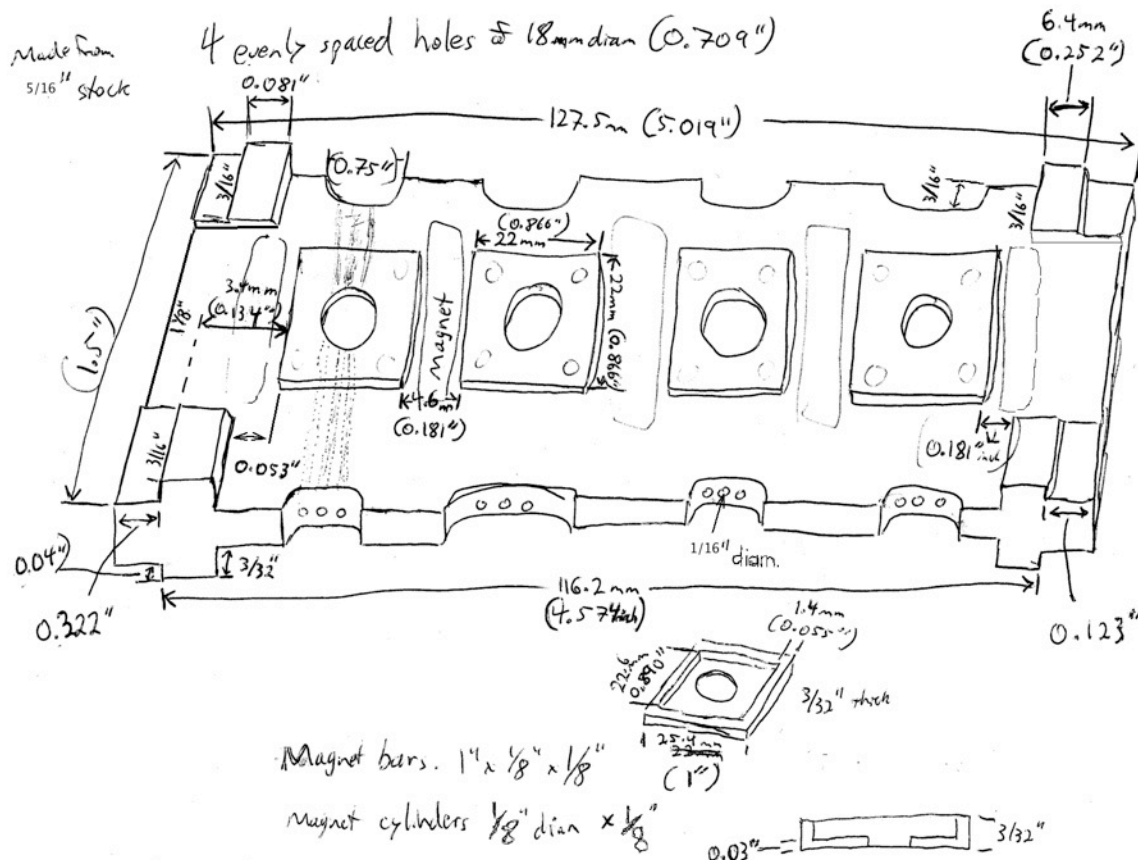 4 evenly spaced holes of 18mm diam (0.709")
Made from
5/16" stock
6.4mm
(0.252")
0.081"
127.5m (5.019")
3/16"
(0.75")
3/16"
3/16"
(0.866")
22mm
22mm (0.866")
3.4mm
(0.134")
1 1/8"
(1.5")
Magnet
4.6m
(0.181")
0.053"
3/16"
0.181" inch
1/16" diam.
0.04"
3/32"
0.322"
116.2mm
(4.574 inch)
0.123"
1.4mm
(0.055")
22.6mm
0.890"
3/32" thick
25.4mm
(1")
Magnet bars. 1" x 1/8" x 1/8"
Magnet cylinders 1/8" diam x 1/8"
0.03"
3/32"